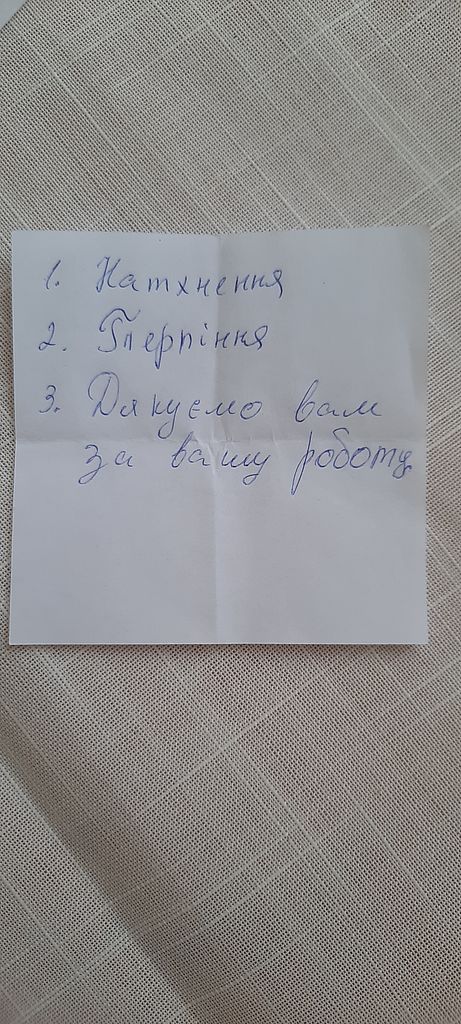 1. Натхнення
2. Терпіння
3. Дякуємо вам
за вашу роботу